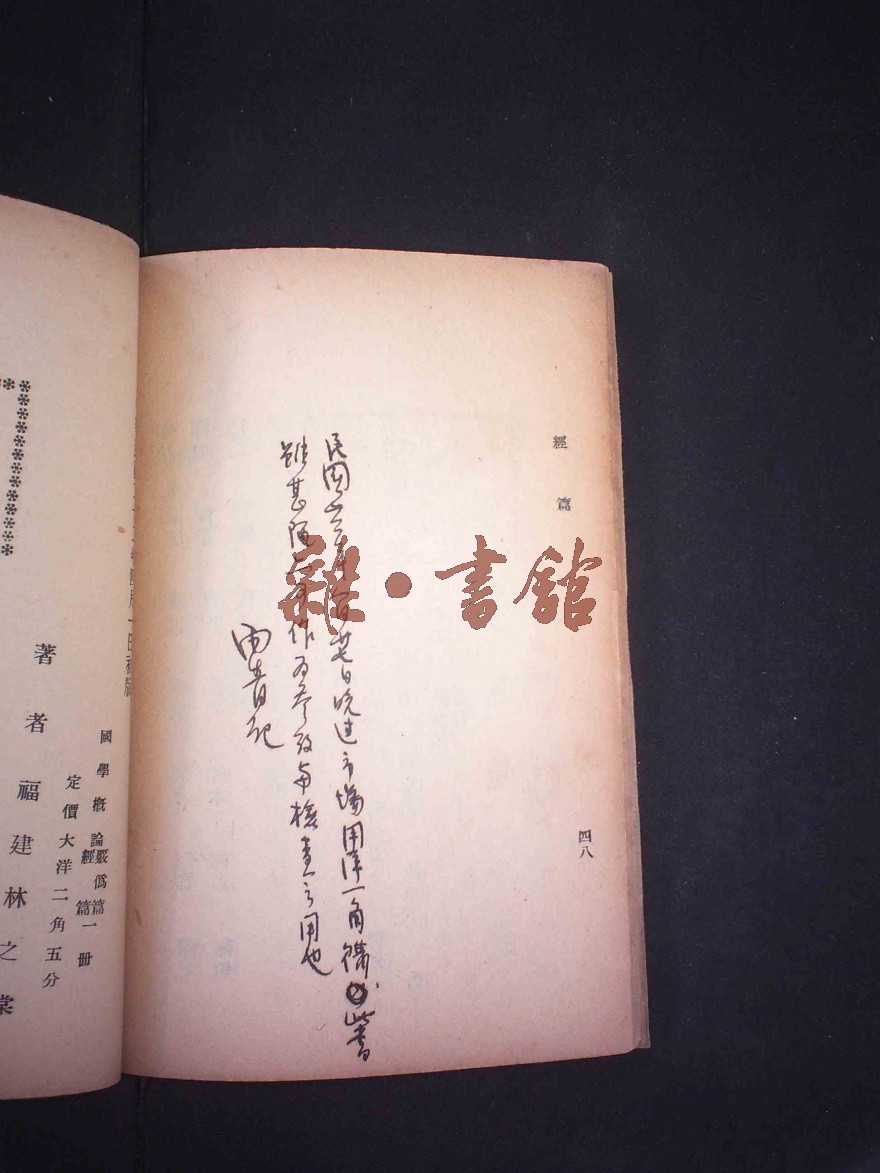 經篇
四八
民國廿六年 月廿七日晚逛市場用洋一角購此書
雖甚陋 可作為參攷與檢查之用也
雨青記
雜·書館
國學概論嚴偽篇經篇一冊
定價大洋二角五分
著者福建林之棠